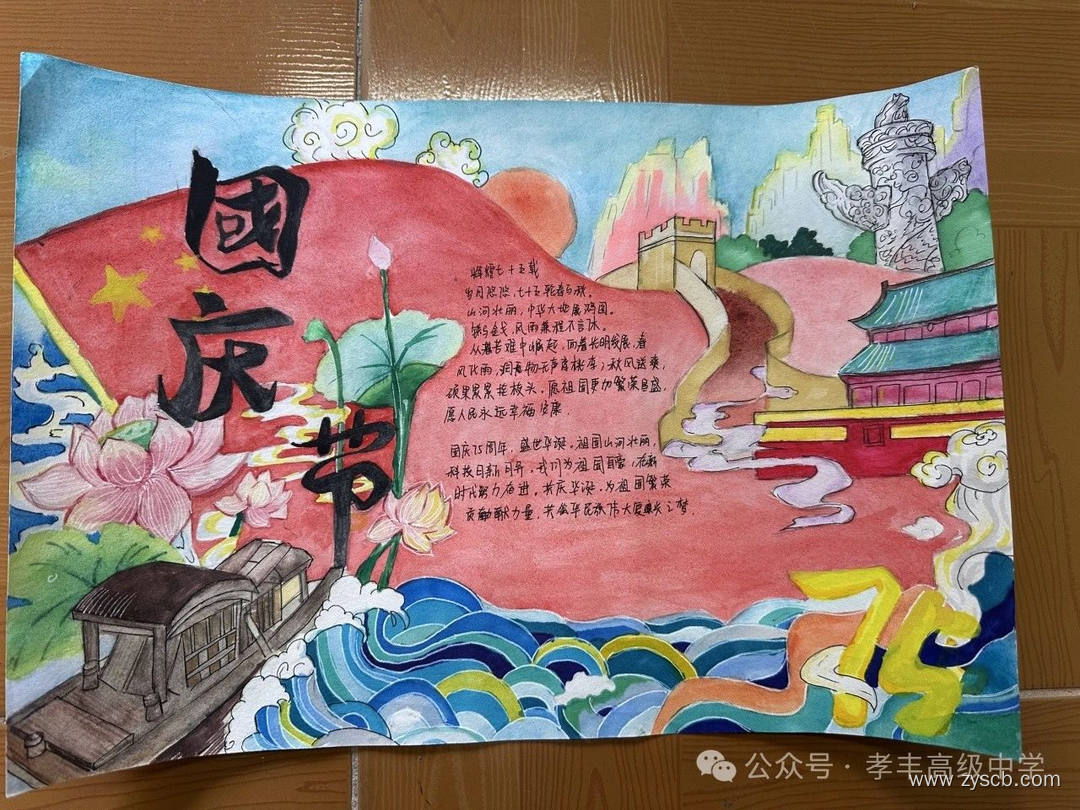 國
庆
节
辉煌七十五载
岁月悠悠，七十五轮春与秋。
山河壮丽，中华大地展鸿图。
风雨兼程不言休。
从苦难中崛起，向着光明发展，春
风化雨，润万物无声育桃李；秋风送爽，
硕果累累挂枝头，愿祖国更加繁荣昌盛，
愿人民永远幸福安康.
国庆75周年，盛世华诞。祖国山河壮丽，
科技日新月异，我们为祖国自豪，在新
时代努力奋进，共庆华诞，为祖国繁荣
贡献力量，共中华民族伟大复兴之梦.
75
公众号·孝丰高级中学
www.zyscb.com